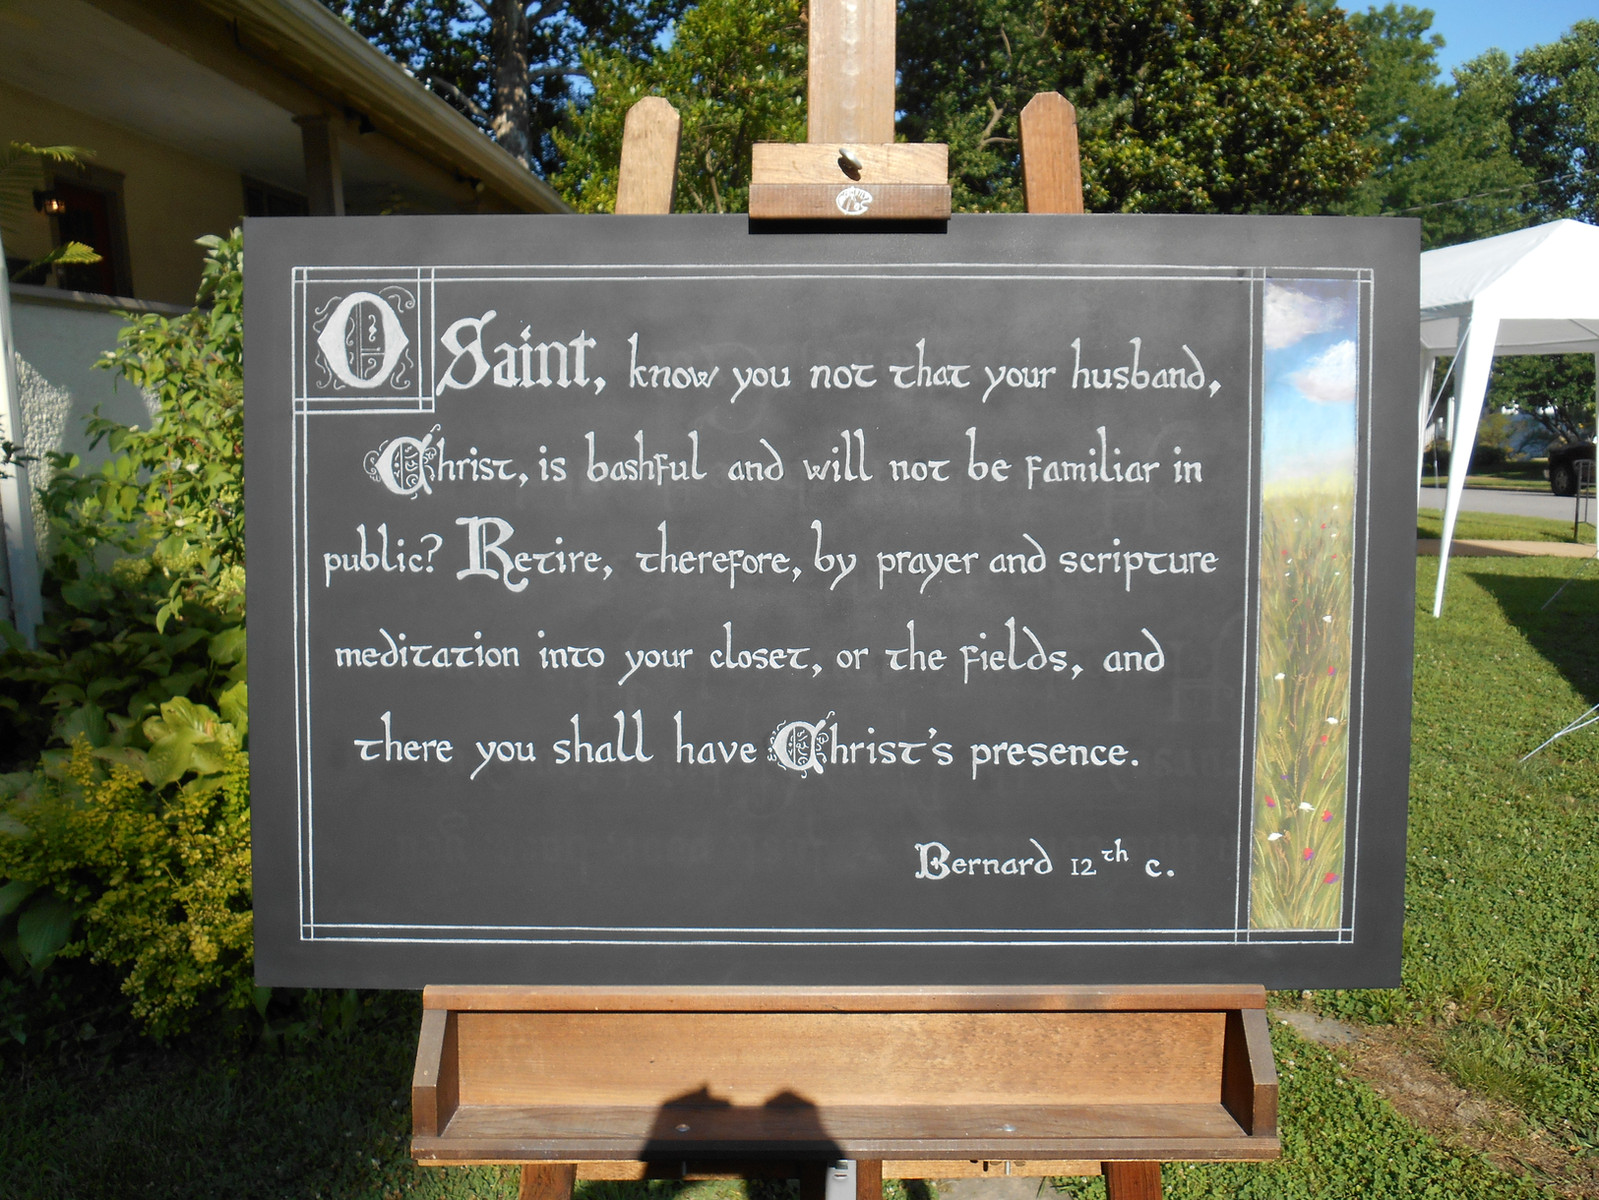 O Saint, know you not that your husband,
Christ, is bashful and will not be familiar in
public? Retire, therefore, by prayer and scripture
meditation into your closet, or the fields, and
there you shall have Christ's presence.
Bernard 12th c.